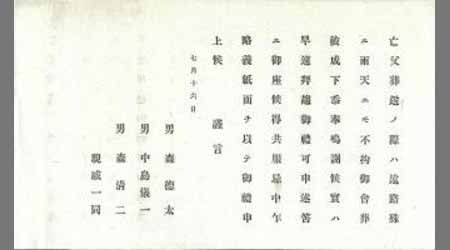 亡父葬送ノ際ハ遠路殊
ニ雨天ニモ不拘御会葬
被成下忝奉鳴謝候實ハ
早速拜趨御禮可申述筈
ニ御座候得共服忌中乍
略義紙面ヲ以テ御禮申
上候　謹言
七月十六日
男　森德太
男　中島儀一
男　森清二
親戚一同